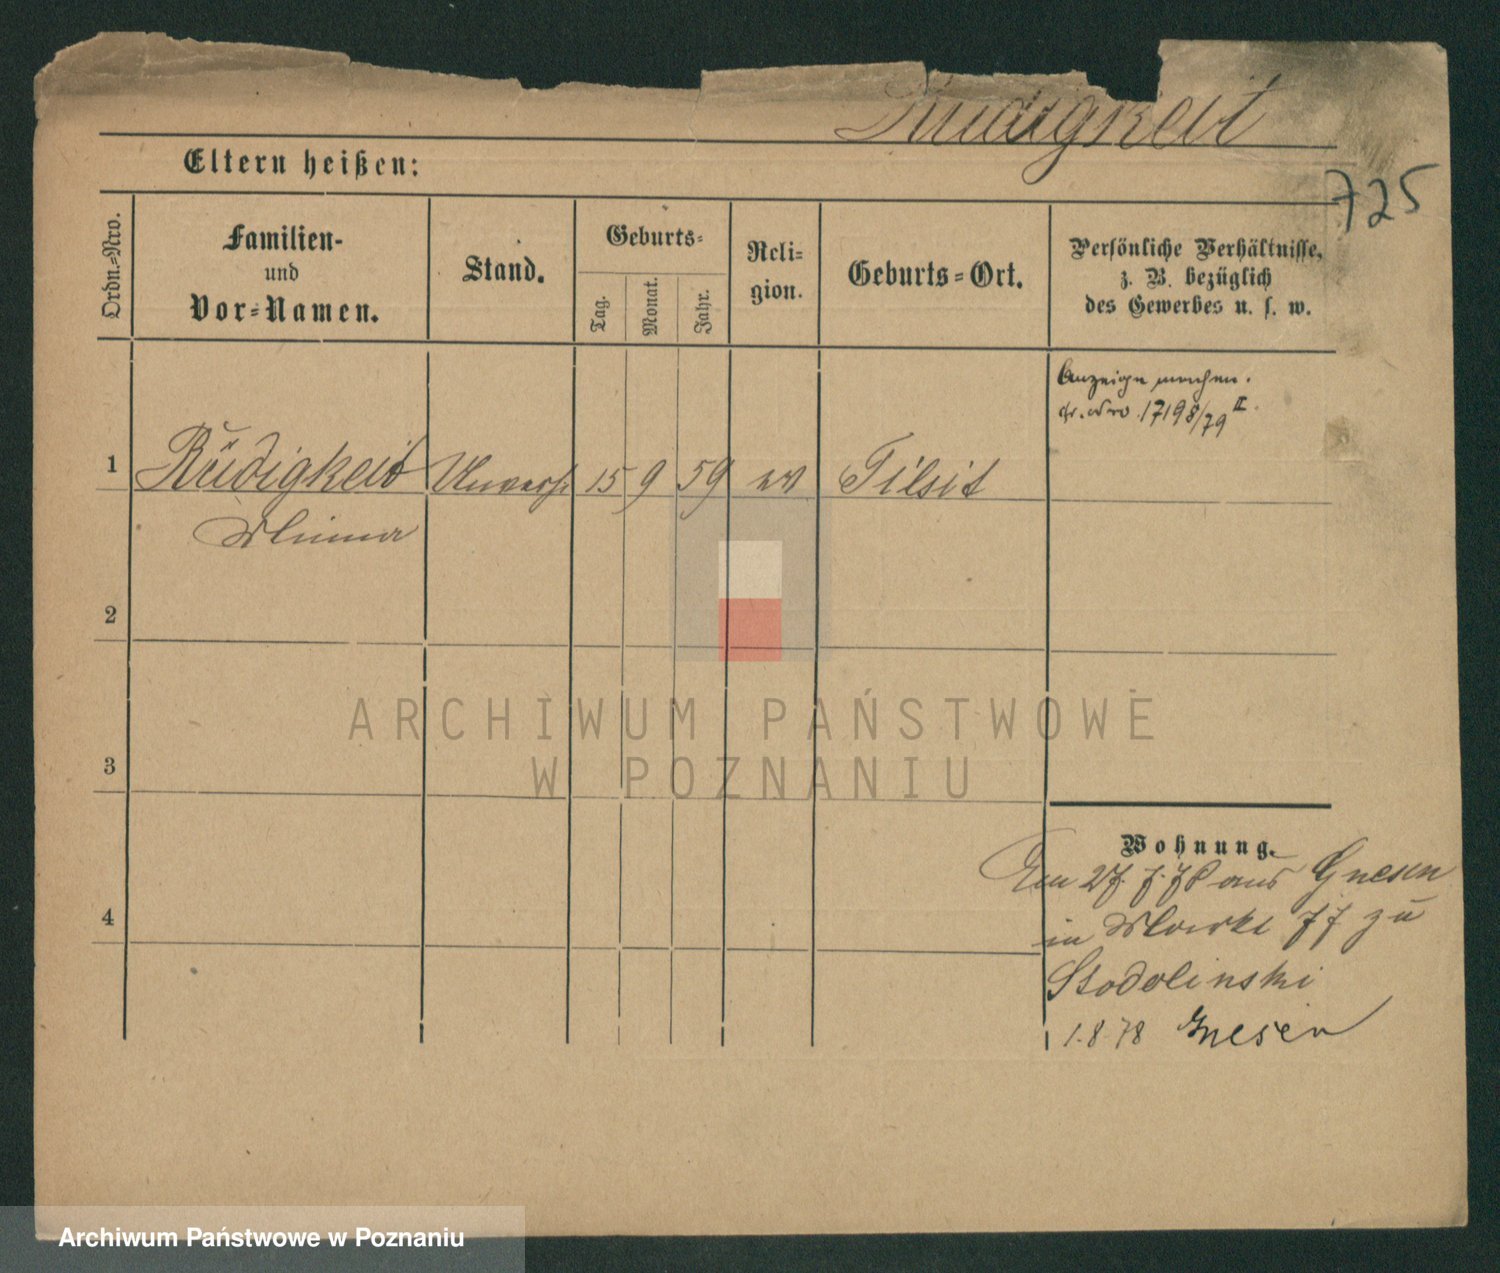 Rudigkeit
Eltern heißen:
725
Ordn.-Nro.
Familien-
und
Vor-Namen.
Stand.
Geburts-
Tag.
Monat.
Jahr.
Reli-
gion.
Geburts-Ort.
Persönliche Verhältnisse,
z. B. bezüglich
des Gewerbes u. s. w.
Anzeige machen.
17198/79 II.
1 Rüdigkeit 15 9 59 ev Tilsit
Minna
2
3
4
ARCHIWUM PAŃSTWOWE
W POZNANIU
Wohnung.
27. 7. 78 aus Gnesen
in Markt 77 zu
Stodolinski
1.8.78 Gnesen
Archiwum Państwowe w Poznaniu